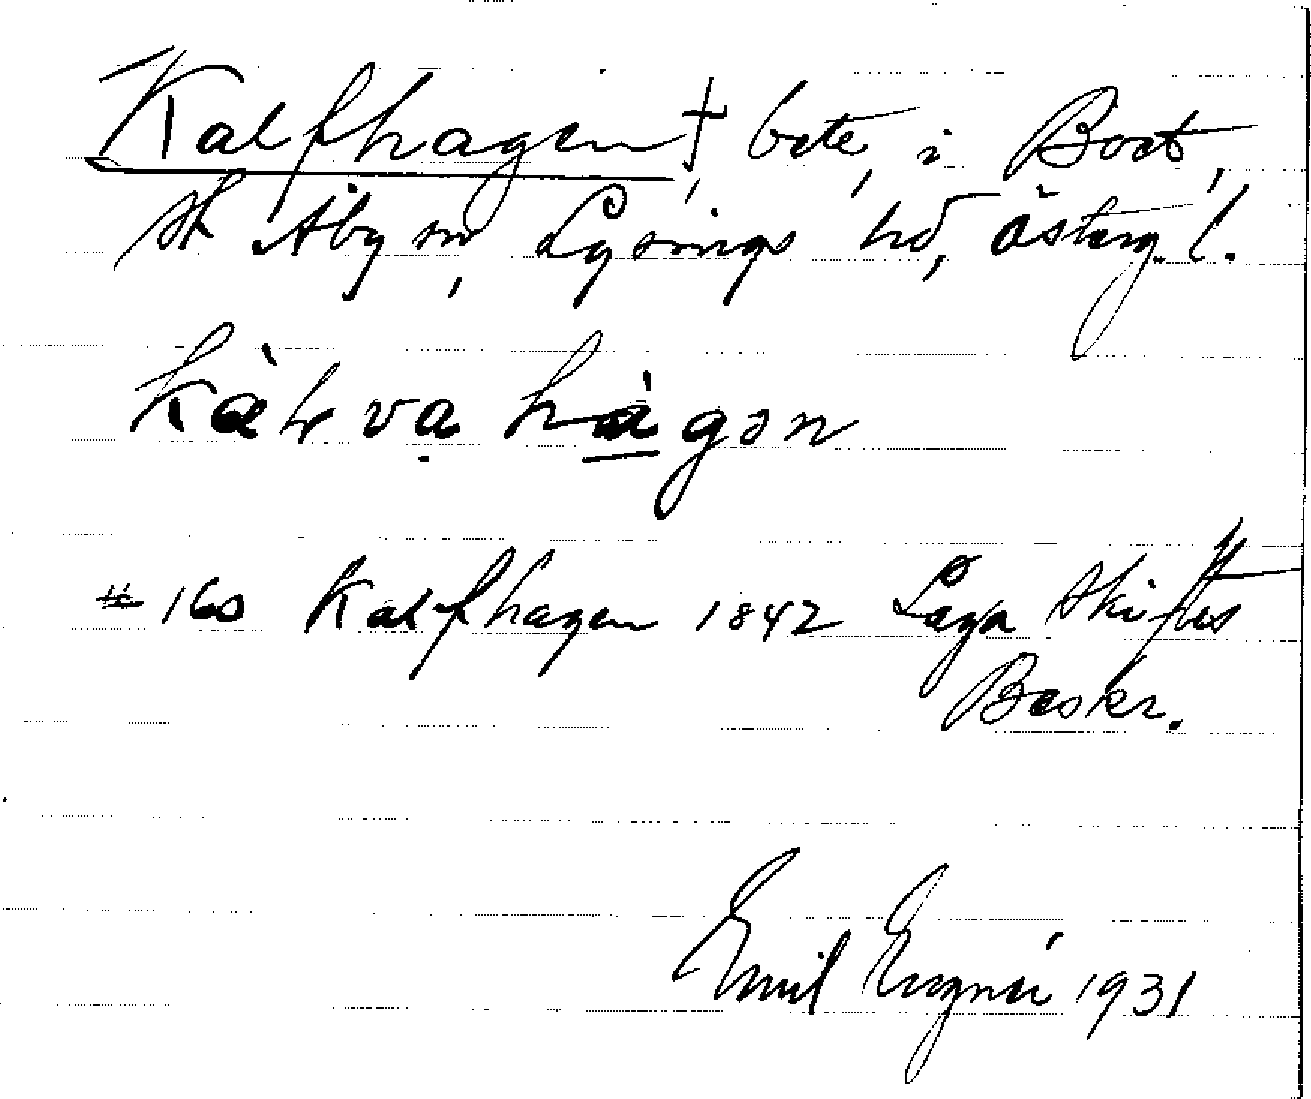 Kalfhagen †, bete, i Boet,
St Åby sn, Lysings hd, Österg. l.
kàl va hàgən
# 160 Kalfhagen 1842 Laga Skiftes
Beskr.
Emil 1931